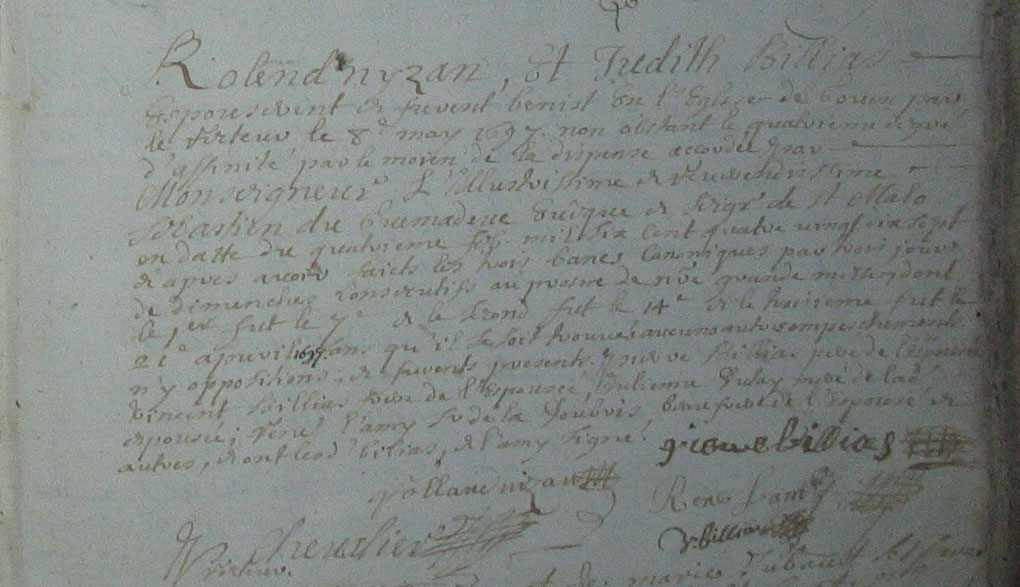 Rolend nyzan, Et Judith Billias
Espouserent & furent benist En l'Eglise de par
le recteur le 8e may 1697. non obstant le quatrieme degré
d'affinité par le moien de la dispense accordée par
Monseigneur L'Illustrissime & reverendissime
Sebastien du Guemadeuc Evêque & Seigr de St Malo
en datte du quatrieme mil six cent quatre vingt dix sept
& apres avoir faicts les trois bancs canoniques par trois jours
de dimenches consecutifs au prosne de nre grande messe dont
le 1er fut le 7e & le second fut le 14e & le troisieme fut le
21e apvril 1697 sans qu'il se soit trouvé aucuns autres empeschements
n'y oppositions, & furents presents pierre Billias pere de l'Epouse
vincent Billias frere de l'Epousée, Julienne mere de lad
epousée, René l'amy Sr de la beau frere de l'Epouse &
autres, dont lesd bilias, & l'amy signé.
pierre billias
Rolland nizan
René Lamy
V: billias
Chevalier
recteur.
et de marie